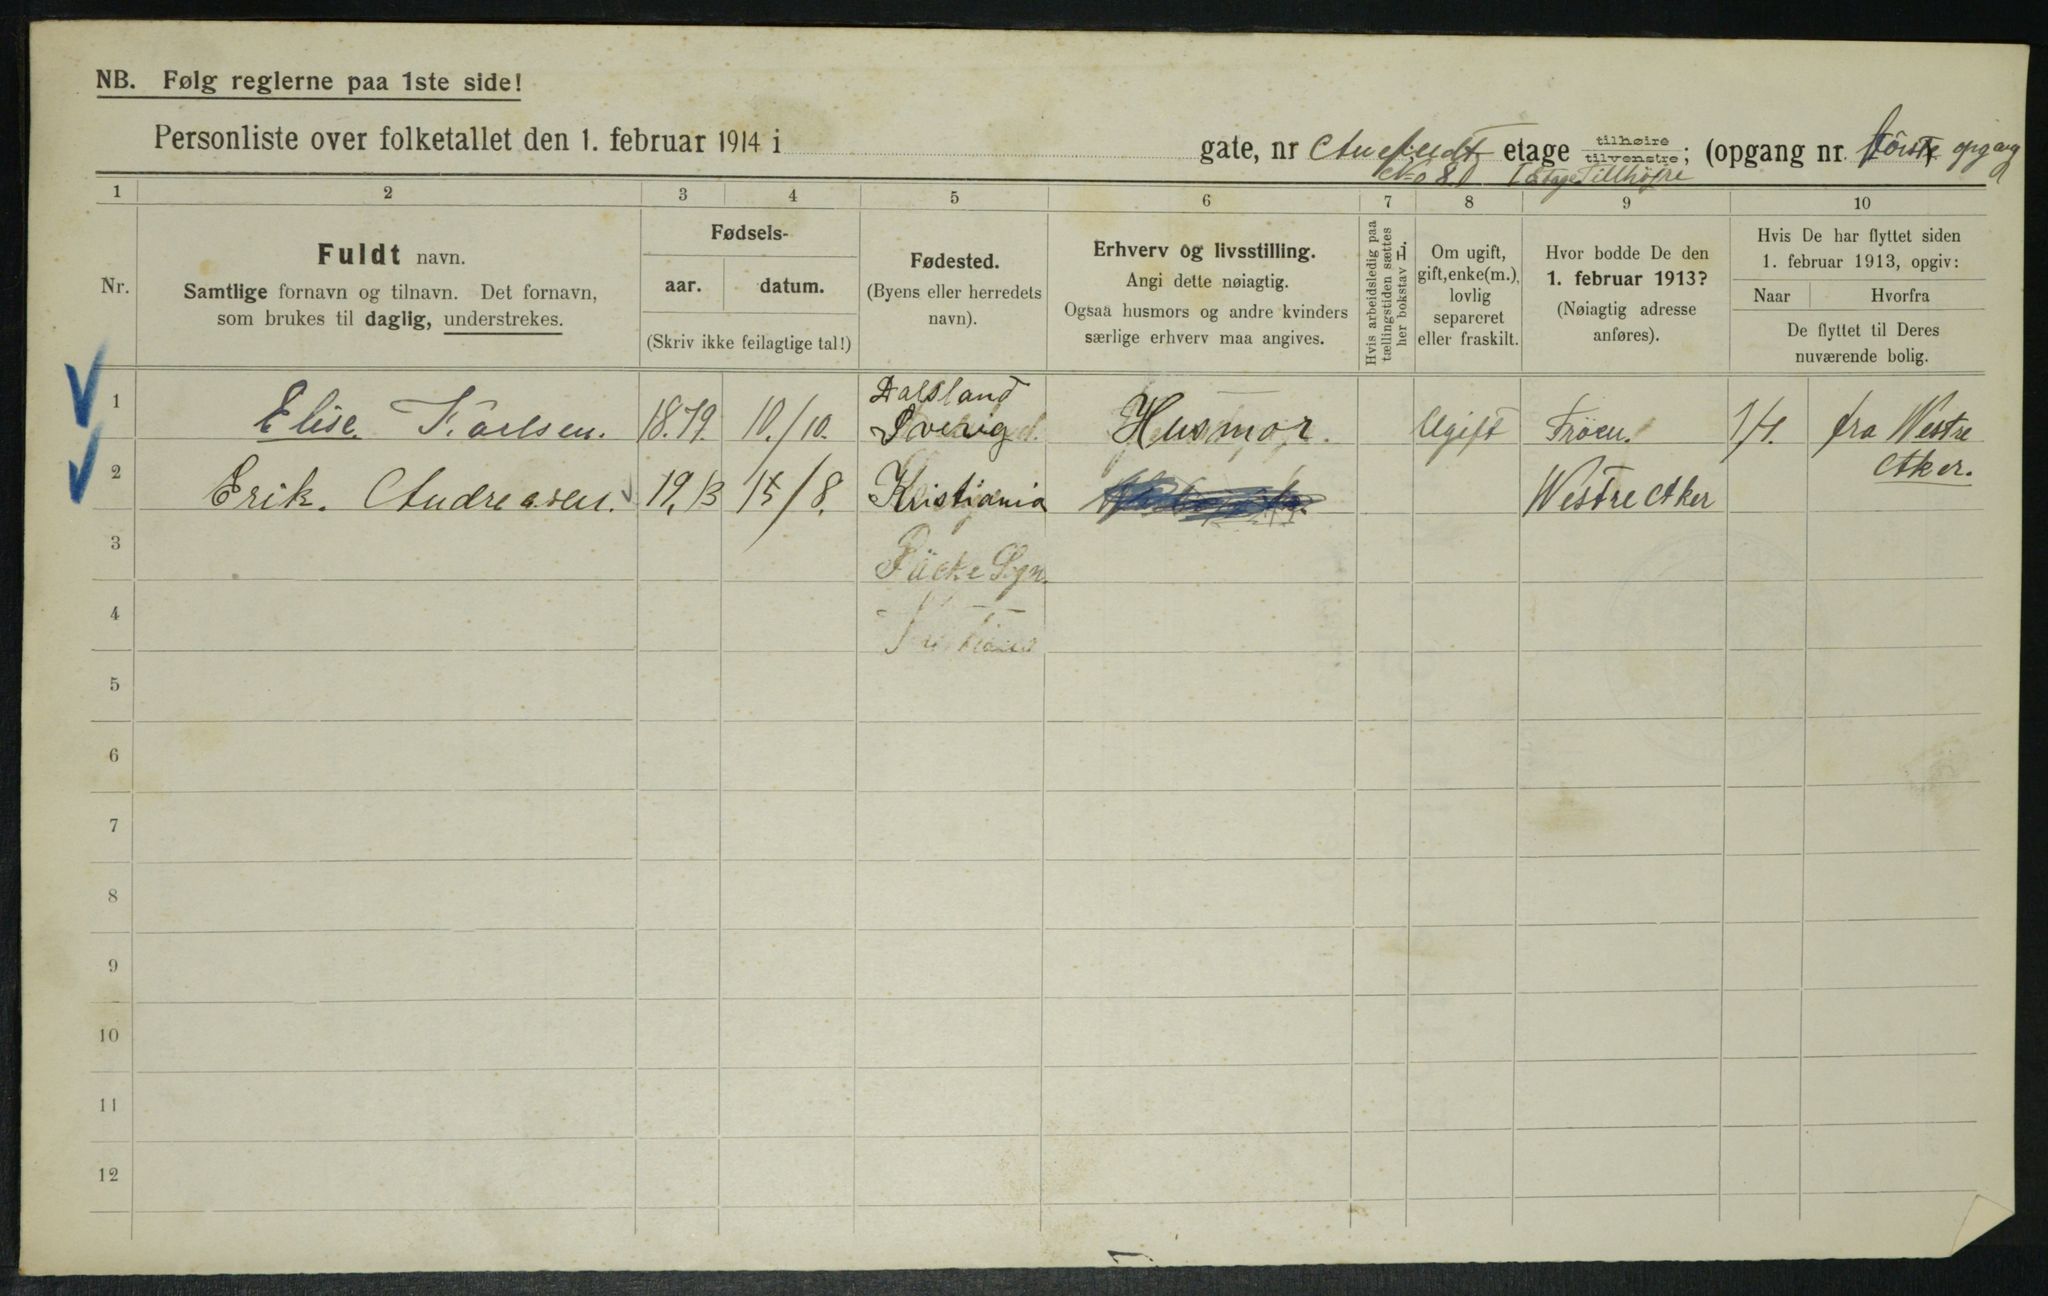 NB. Følg reglerne paa 1ste side!
Personliste over folketallet den 1. februar 1914 i gate, nr etage tilhøire tilvenstre; (opgang nr. förste opgang
No 8. I Etage Tillhöjre
1 2 3 4 5 6 7 8 9 10
Nr.
Fuldt navn.
Samtlige fornavn og tilnavn. Det fornavn,
som brukes til daglig, understrekes.
Fødsels-
aar. datum.
(Skriv ikke feilagtige tal!)
Fødested.
(Byens eller herredets
navn).
Erhverv og livsstilling.
Angi dette nøiagtig.
Ogsaa husmors og andre kvinders
særlige erhverv maa angives.
Hvis arbeidsledig paa
tællingstiden sættes
her bokstav L
Om ugift,
gift, enke(m.),
lovlig
separeret
eller fraskilt.
Hvor bodde De den
1. februar 1913?
(Nøiagtig adresse
anføres).
Hvis De har flyttet siden
1. februar 1913, opgiv:
Naar Hvorfra
De flyttet til Deres
nuværende bolig.
Dalsland
1 Elise Karlsen. 18.79. 10./10. Sverig Husmor. Ugift Fröen. 1/4. fra Westre
Aker.
2 Erik. Andreasen. 19.13 15/8. Kristiania Westre Aker
3
4
5
6
7
8
9
10
11
12